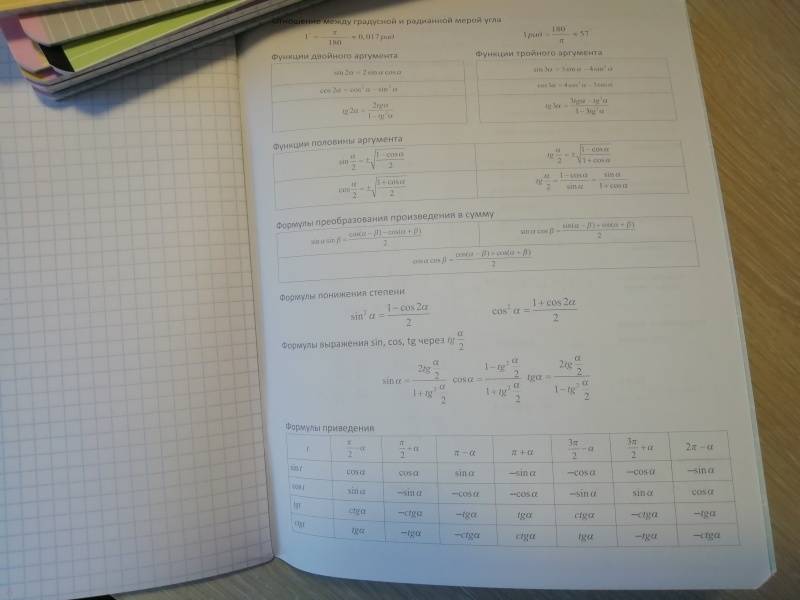 Отношение между градусной и радианной мерой угла
1° = π/180 ≈ 0,017 рад 1 рад = 180/π ≈ 57°
Функции двойного аргумента Функции тройного аргумента
sin 2α = 2 sin α cos α sin 3α = 3 sin α − 4 sin³ α
cos 2α = cos² α − sin² α cos 3α = 4 cos³ α − 3 cos α
tg 2α = 2tgα/(1 − tg²α) tg 3α = (3tgα − tg³α)/(1 − 3tg²α)
Функции половины аргумента
sin α/2 = ±√((1 − cos α)/2) tg α/2 = ±√((1 − cos α)/(1 + cos α))
cos α/2 = ±√((1 + cos α)/2) tg α/2 = (1 − cos α)/sin α = sin α/(1 + cos α)
Формулы преобразования произведения в сумму
sin α sin β = (cos(α − β) − cos(α + β))/2 sin α cos β = (sin(α − β) + sin(α + β))/2
cos α cos β = (cos(α − β) + cos(α + β))/2
Формулы понижения степени
sin² α = (1 − cos 2α)/2 cos² α = (1 + cos 2α)/2
Формулы выражения sin, cos, tg через tg α/2
sin α = 2tg α/2 / (1 + tg² α/2) cos α = (1 − tg² α/2)/(1 + tg² α/2) tgα = 2tg α/2 / (1 − tg² α/2)
Формулы приведения
t π/2 − α π/2 + α π − α π + α 3π/2 − α 3π/2 + α 2π − α
sin t cos α cos α sin α −sin α −cos α −cos α −sin α
cos t sin α −sin α −cos α −cos α −sin α sin α cos α
tgt ctgα −ctgα −tgα tgα ctgα −ctgα −tgα
ctgt tgα −tgα −ctgα ctgα tgα −tgα −ctgα